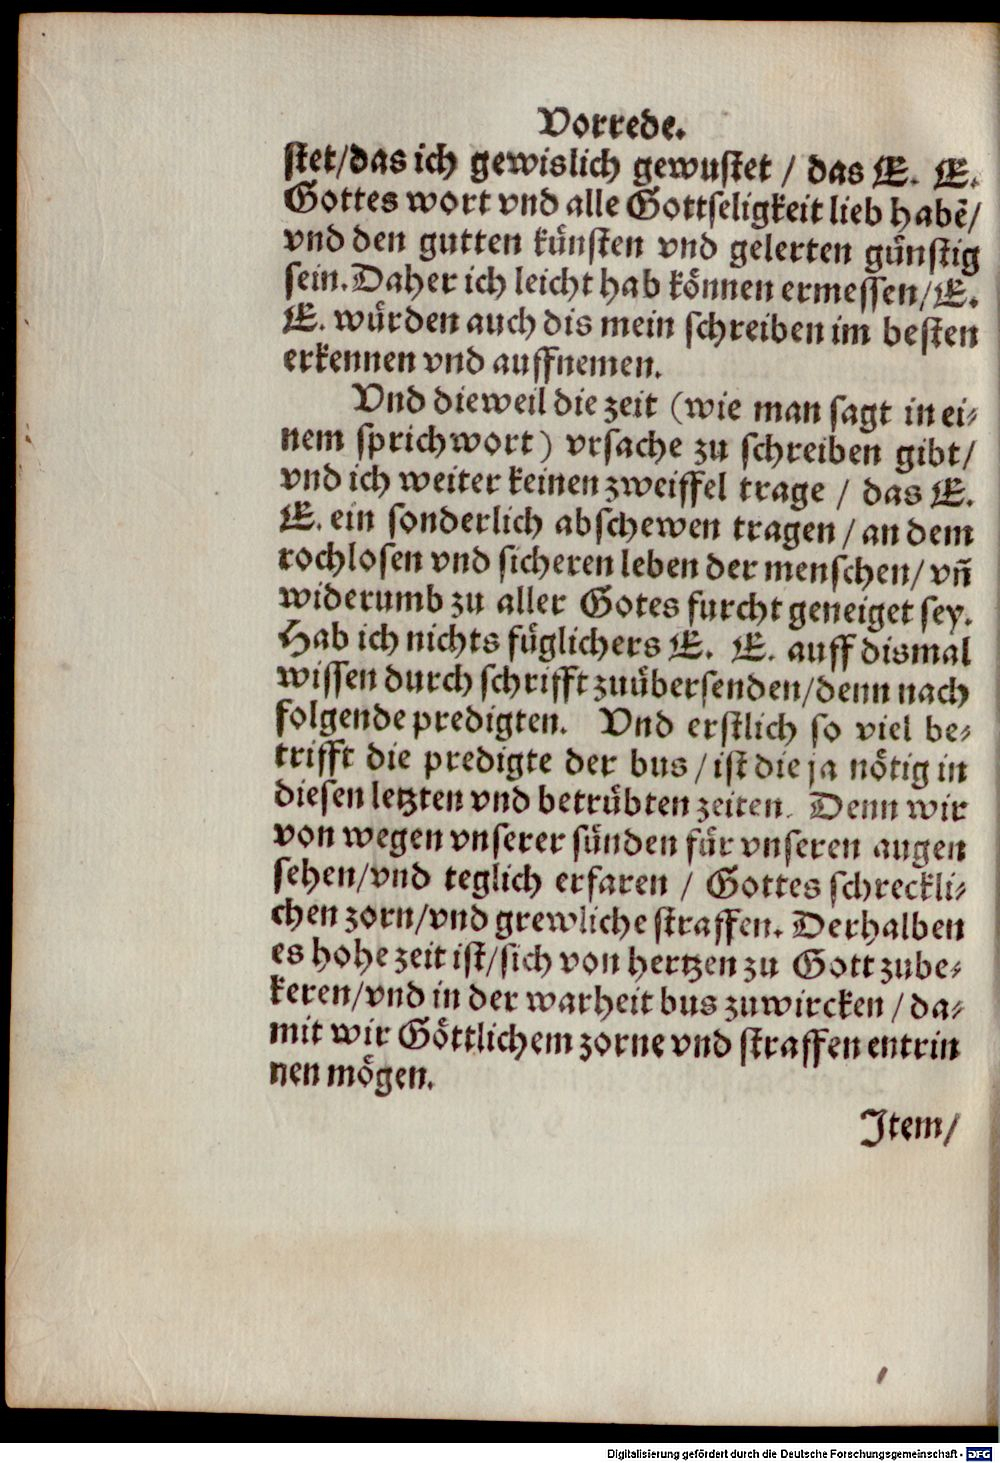 Vorrede.
stet/das ich gewislich gewustet / das E. E.
Gottes wort vnd alle Gottseligkeit lieb habẽ/
vnd den gutten künsten vnd gelerten günstig
sein. Daher ich leicht hab können ermessen/E.
E. würden auch dis mein schreiben im besten
erkennen vnd auffnemen.
Vnd dieweil die zeit (wie man sagt in ei-
nem sprichwort) vrsache zu schreiben gibt/
vnd ich weiter keinen zweiffel trage / das E.
E. ein sonderlich abschewen tragen / an dem
rochlosen vnd sicheren leben der menschen/ vñ
widerumb zu aller Gotes furcht geneiget sey.
Hab ich nichts füglichers E. E. auff dismal
wissen durch schrifft zuübersenden/denn nach
folgende predigten. Vnd erstlich so viel be-
trifft die predigte der bus / ist die ja nötig in
diesen letzten vnd betrübten zeiten. Denn wir
von wegen vnserer sünden für vnseren augen
sehen/vnd teglich erfaren / Gottes schreckli-
chen zorn/vnd grewliche straffen. Derhalben
es hohe zeit ist/sich von hertzen zu Gott zube-
keren/vnd in der warheit bus zuwircken / da-
mit wir Göttlichem zorne vnd straffen entrin
nen mögen.
Item/
Digitalisierung gefördert durch die Deutsche Forschungsgemeinschaft - DFG